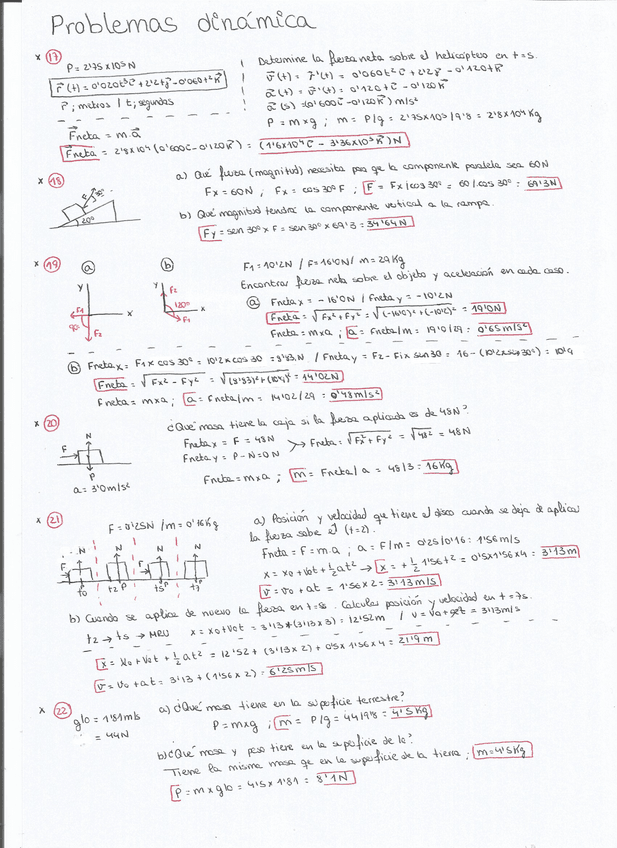 Problemas dinámica
x 17
P = 2'75x10³N
r⃗(t) = 0'020t³i⃗ + 2'2tj⃗ - 0'060t²k⃗
r⃗; metros / t; segundos
F⃗neta = m.a⃗
Determine la fuerza neta sobre el helicóptero en t=5s.
v⃗(t) = r⃗'(t) = 0'060t²i⃗ + 2'2j⃗ - 0'120tk⃗
a⃗(t) = v⃗'(t) = 0'120ti⃗ - 0'120k⃗
a⃗(5) = (0'600i⃗ - 0'120k⃗) m/s²
P = mxg ; m = P/g = 2'75x10³/9'8 = 2'8x10⁴Kg
F⃗neta = 2'8x10⁴(0'600i⃗ - 0'120k⃗) = (1'6x10⁴i⃗ - 3'36x10³k⃗)N
x 18
F
30º
20º
a) Qué fuerza (magnitud) necesita para qe la componente paralela sea 60N
Fx = 60N ; Fx = cos 30º F ; F = Fx/cos30º = 60/cos30º = 69'3N
b) Qué magnitud tendrá la componente vertical a la rampa.
Fy = sen 30º x F = sen 30º x 69'3 = 34'64N
x 19
a
y
x
F1
90º
F2
b
y
F2
120º
x
F1
F1 = 10'2N / F = 16'0N / m = 29Kg
Encontrar fuerza neta sobre el objeto y aceleración en cada caso.
a Fneta x = -16'0N / Fneta y = -10'2N
Fneta = √Fx²+Fy² = √(-16'0)²+(-10'2)² = 19'0N
Fneta = mxa ; a = Fneta/m = 19'0/29 = 0'65m/s²
b Fneta x = F1 x cos 30º = 10'2 x cos 30 = 8'83N / Fneta y = F2 - F1x sen30 = 16 - (10'2xsen30º) = 10'9
Fneta = √Fx² - Fy² = √(8'83)²+(10'9)² = 14'02N
Fneta = mxa ; a = Fneta/m = 14'02/29 = 0'48m/s²
x 20
N
F
P
a = 3'0m/s²
¿Qué masa tiene la caja si la fuerza aplicada es de 48N?
Fneta x = F = 48N
Fneta y = P-N = 0N
Fneta = √Fx²+Fy² = √48² = 48N
Fneta = mxa ; m = Fneta/a = 48/3 = 16Kg
x 21
F = 0'25N / m = 0'16Kg
N N N N
F F
t0 t2 P t5 P t7 P
a) Posición y velocidad que tiene el disco cuando se deja de aplicar
la fuerza sobre él (t=2).
Fneta = F = m.a ; a = F/m = 0'25/0'16 = 1'56m/s
x = x0 + v0t + ½at² → x = + ½ 1'56t² = 0'5x1'56x4 = 3'13m
v = v0 + at = 1'56 x 2 = 3'13m/s
b) Cuando se aplica de nuevo la fuerza en t=5s. Calcular posición y velocidad en t=7s.
t2 → t5 → MRU x = x0+v0t = 3'13+(3'13x3) = 12'52m / v = v0 = 3'13m/s
x = x0 + v0t + ½at² = 12'52 + (3'13x2) + 0'5x1'56x4 = 21'9m
v = v0 + at = 3'13 + (1'56x2) = 6'25m/s
x 22
gIo = 1'81m/s
= 44N
a) ¿Qué masa tiene en la superficie terrestre?
P = mxg ; m = P/g = 44/9'8 = 4'5Kg
b) ¿Qué masa y peso tiene en la superficie de Io?
Tiene la misma masa qe en la superficie de la tierra ; m = 4'5Kg
P = m x gIo = 4'5 x 1'81 = 8'1N